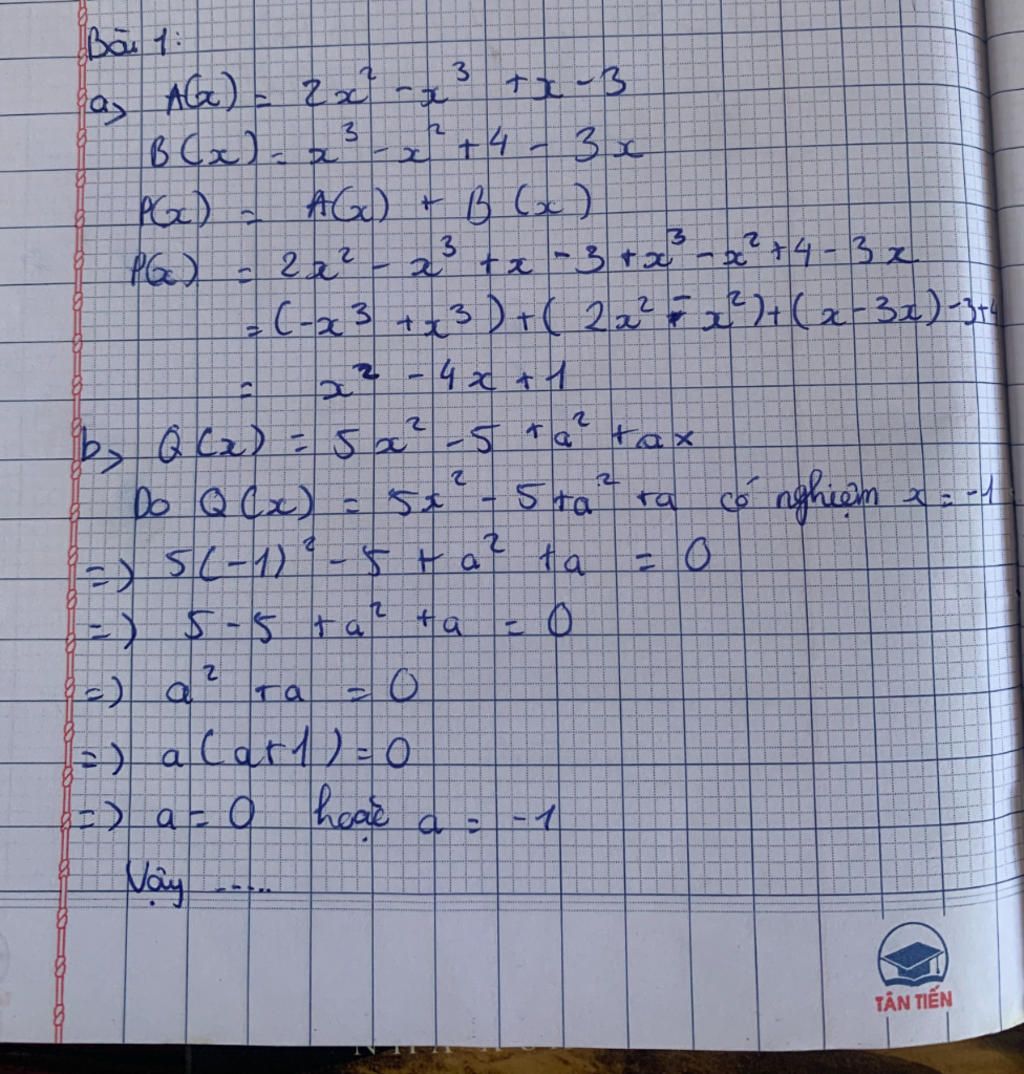 Bài 1:
a) A(x) = 2x² - x³ + x - 3
B(x) = x³ - x² + 4 - 3x
P(x) = A(x) + B(x)
P(x) = 2x² - x³ + x - 3 + x³ - x² + 4 - 3x
= (-x³ + x³) + (2x² - x²) + (x - 3x) - 3 + 4
= x² - 4x + 1
b) Q(x) = 5x² - 5 + a² + ax
Do Q(x) = 5x² - 5 + a² + a có nghiệm x = -1
=) 5(-1)² - 5 + a² + a = 0
=) 5 - 5 + a² + a = 0
=) a² + a = 0
=) a(a+1) = 0
=) a = 0 hoặc a = -1
Vậy .....
TÂN TIẾN